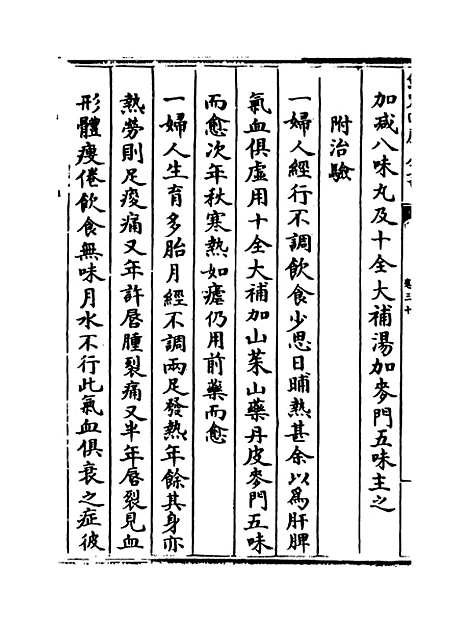 加减八味丸及十全大補湯加麥門五味主之
附治驗
一婦人經行不調飲食少思日晡熱甚余以爲肝脾
氣血俱虛用十全大補加山茱山藥丹皮麥門五味
而愈次年秋寒熱如瘧仍用前藥而愈
一婦人生育多胎月經不調兩足發熱年餘其身亦
熱勞則足痠痛又年許唇腫裂痛又半年唇裂見血
形體瘦倦飲食無味月水不行此氣血俱衰之症彼
卷三十